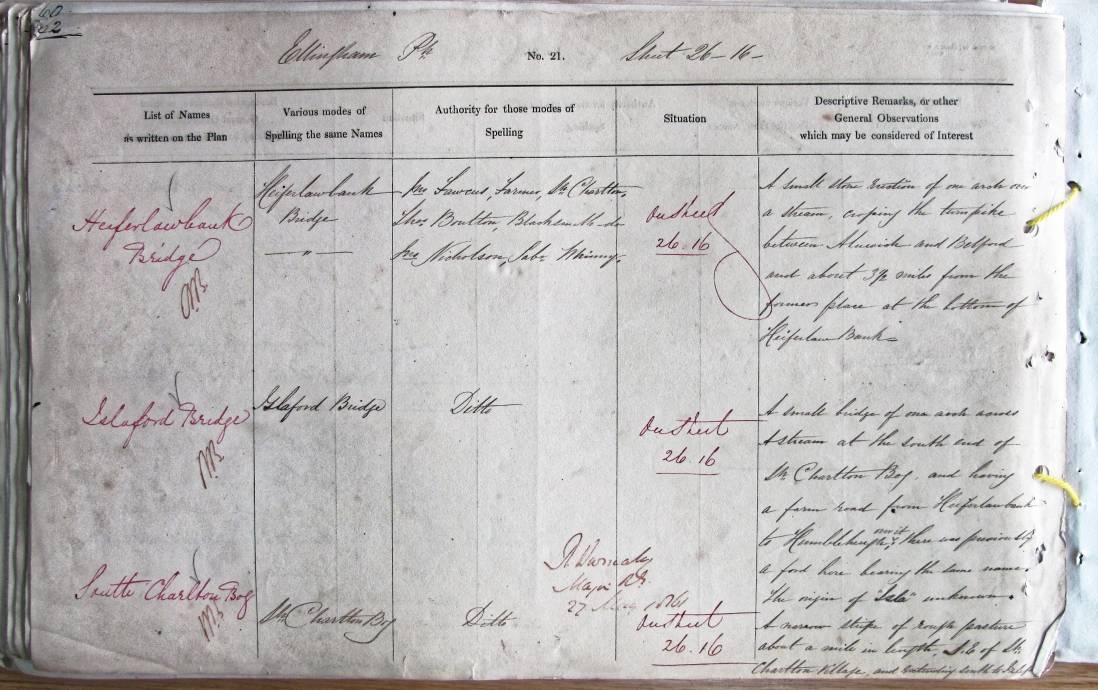 60
62
Ellingham Ph
No. 21.
Sheet 26-16-
List of Names
as written on the Plan
Various modes of
Spelling the same Names
Authority for those modes of
Spelling
Situation
Descriptive Remarks, or other
General Observations
which may be considered of Interest
Heiferlawbank
Bridge
Heiferlawbank
Bridge
— " —
Jno Fawcus, Farmer, Sth Charlton,
Thos Boulton, Blacksmith - do
Jno Nicholson, Whinny.
On Sheet
26.16
A small stone erection of one arch over
a stream, crossing the turnpike
between Alnwick and Belford
and about 3½ miles from the
former place at the bottom of
Heiferlaw Bank
Islaford Bridge
Islaford Bridge
Ditto
On Sheet
26.16
A small bridge of one arch across
A stream at the south end of
Sth Charlton Bog, and having
a farm road from Heiferlawbank
to Humbleheugh, over it, there was previously
a ford here bearing the same name.
The origin of "Isla" unknown.
Major R.E.
27 May 1861
South Charlton Bog
Sth Charlton Bog
Ditto
On Sheet
26.16
A narrow stripe of rough pasture
about a mile in length, S.E of Sth
Charlton Village, and extending south to